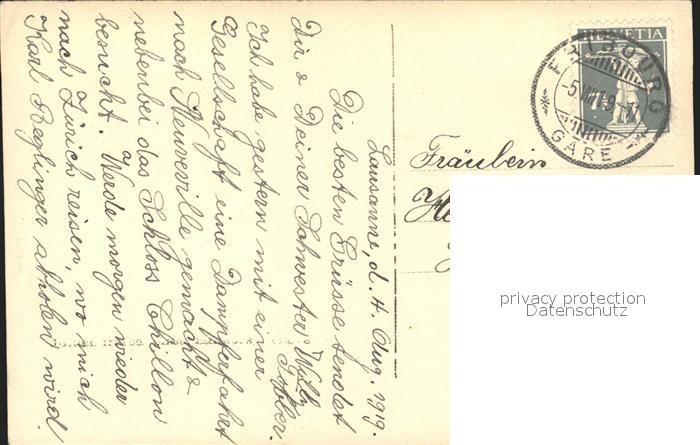 Lausanne, d. 4. Aug. 1919.
Die besten Grüsse sendet
Dir & Deiner Schwester Willi
Ich habe gestern mit einer
Gesellschaft eine Dampferfahrt
nach Neuveville gemacht &
nebenbei das Schloss Chillon
besucht. Werde morgen wieder
nach Zürich reisen, wo mich
Karl Reglinger abholen wird.
HELVETIA
7½
FRIBOURG
GARE
Fräulein
privacy protection
Datenschutz